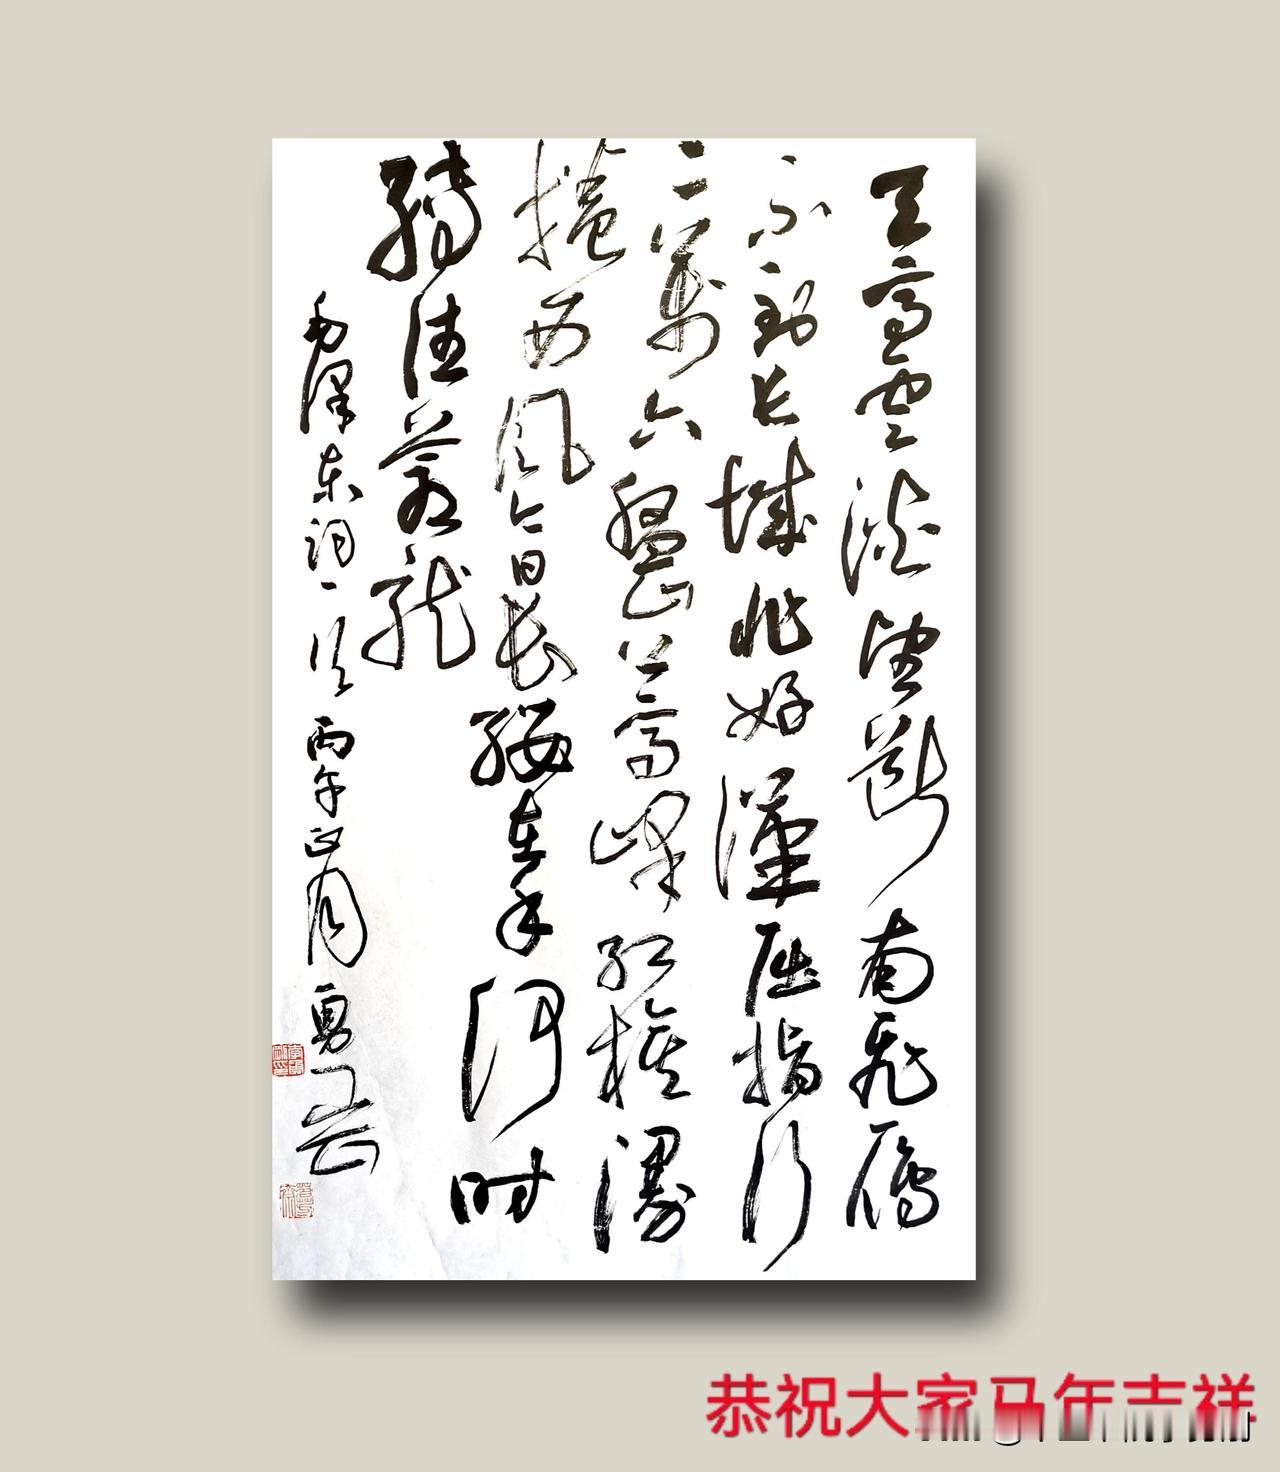 天高雲淡望斷南飛雁
不到长城非好漢屈指行
二萬六盤山上高峰红旗漫
捲西風今日长缨在手何时
缚住蒼龍
毛泽东词一首 丙午正月 勇
恭祝大家马年吉祥